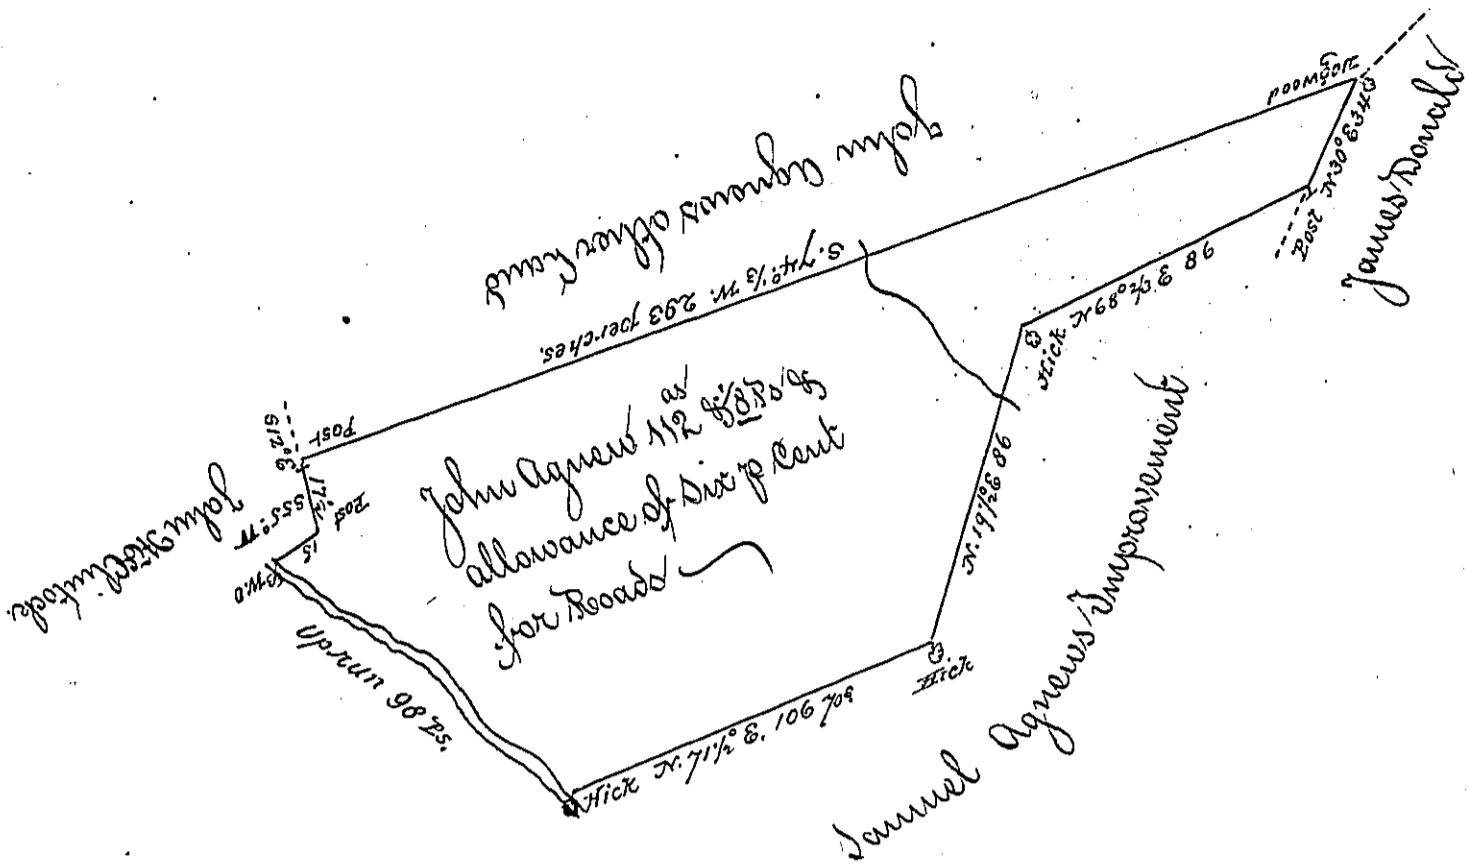 John Agnews other Land
S. 74°⅓ W. 293 perches.
Dogwood
N 30° E 34
Post
James Donald
Hick N 68°⅔ E 98
N. 19½° E 86
Hick
Samuel Agnews Improvement
Hick N. 71½° E. 106
Up run 98 Ps.
B W. O
S 55° W
15
Post
17
Post
John McClintock.
John Agnew 112 as
allowance of Six p Cent
for Roads